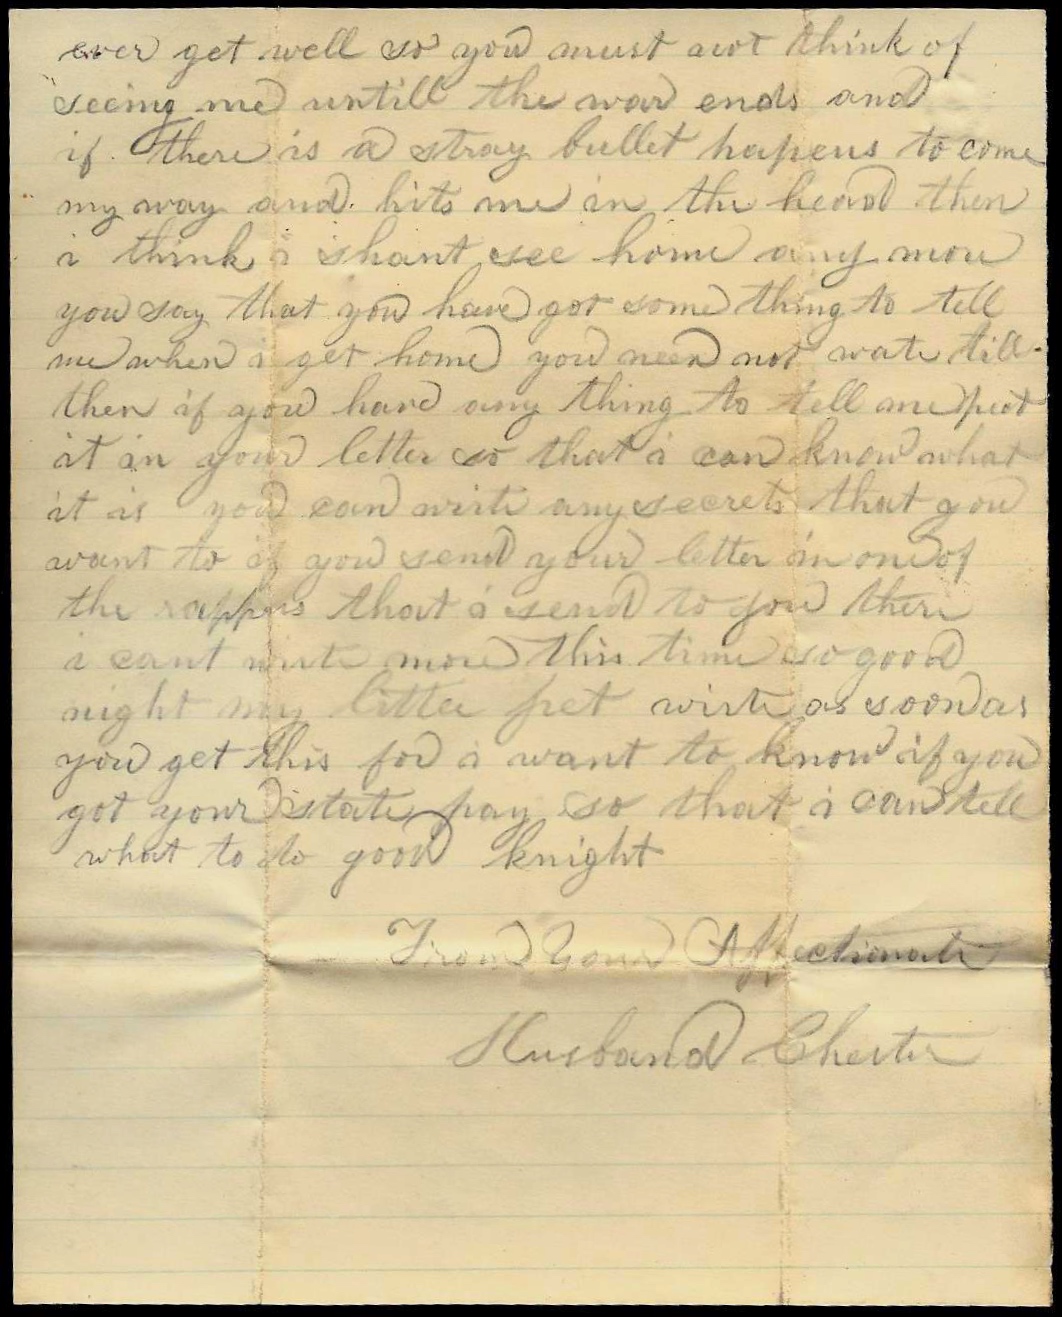 ever get well so you must not think of
seeing me untill the war ends and
if there is a stray bullet hapens to come
my way and hits me in the head then
i think i shant see home any more
you say that you have got some thing to tell
me when i get home you need not wate till
then if you have any thing to tell me put
it in your letter so that i can know what
it is you can write any secrets that you
want to if you send your letter in one of
the rappers that i send to you there
i cant write more this time so good
night my little pet write as soon as
you get this for i want to know if you
got your state pay so that i can tell
what to do good knight
From Your Affectionate
Husband Chester